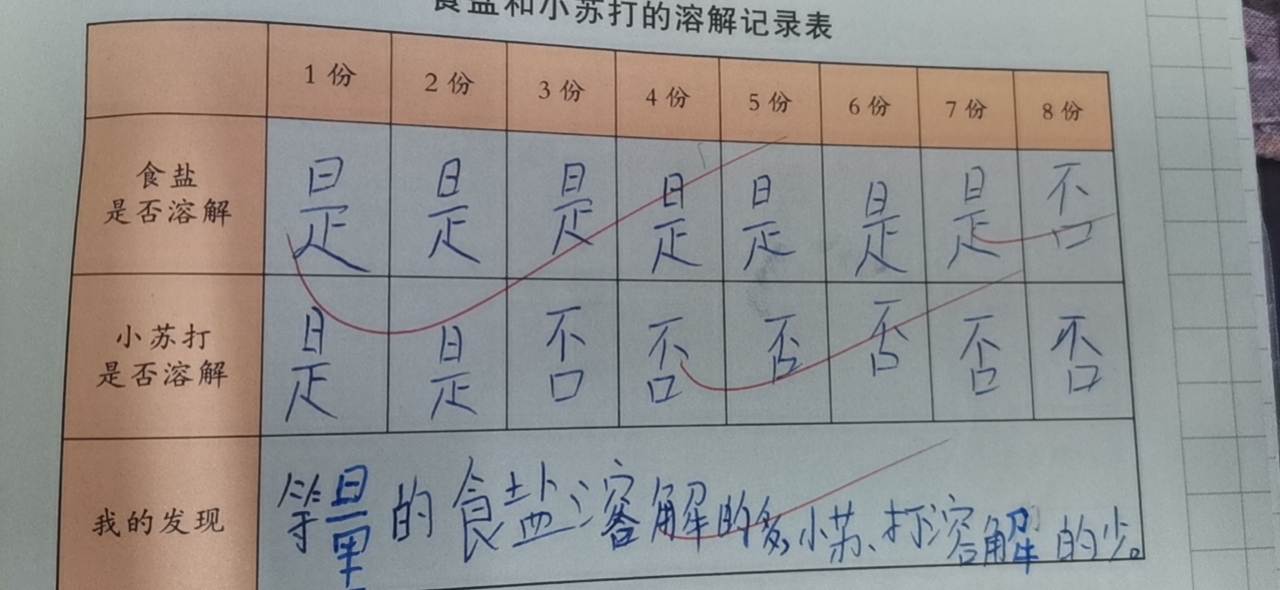 食盐和小苏打的溶解记录表
1份 2份 3份 4份 5份 6份 7份 8份
食盐
是否溶解 是 是 是 是 是 是 是 否
小苏打
是否溶解 是 是 否 否 否 否 否 否
我的发现 等量的食盐溶解的多,小苏打溶解的少。